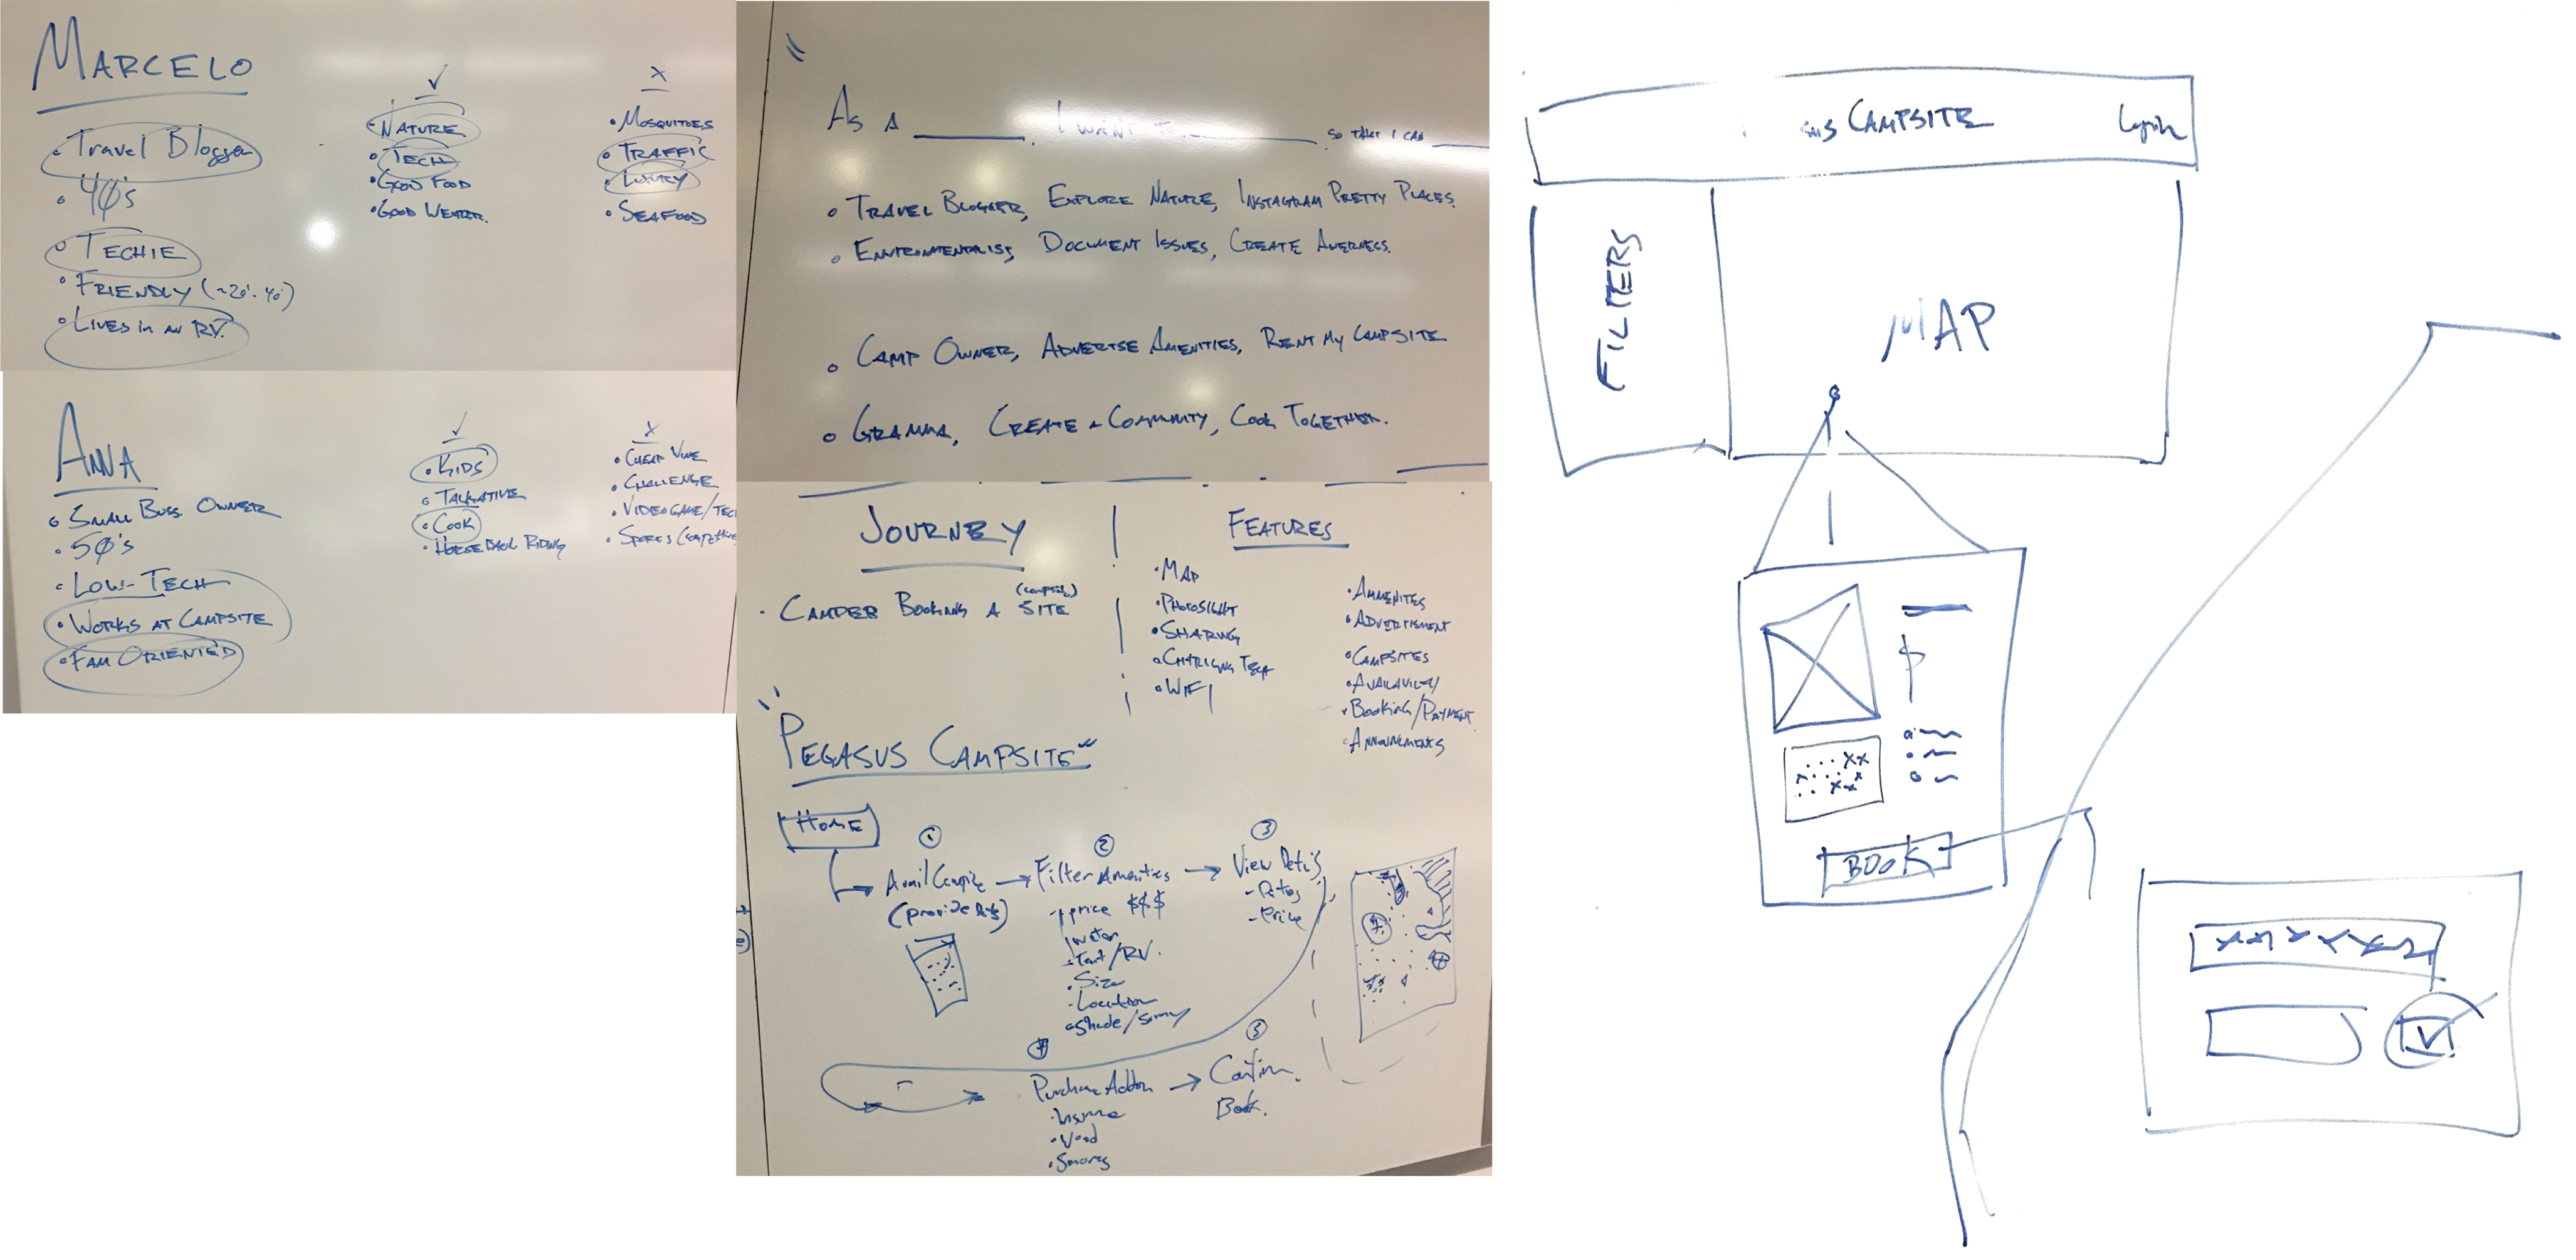 MARCELO
• Travel Blogger
• 40's
• TECHIE
• FRIENDLY (~20'-40')
• LIVES in AN RV.
✓
• NATURE
• TECH
• GOOD FOOD
• GOOD WEATR.
x
• MOSQUITOES
• TRAFFIC
• LUXURY
• SEAFOOD
ANNA
• SMALL BUSS OWNER
• 50's
• LOW-TECH
• WORKS AT CAMPSITE
• FAM ORIENTED
✓
• KIDS
• TALKATIVE
• COOK
• HORSE BACK RIDING
x
• CHEAP
• CHALLENGE
• VIDEOGAME/TEC
• SPORTS
As A ____. I WANT TO ____. SO THAT I CAN ____
• TRAVEL BLOGGER, EXPLORE NATURE, INSTAGRAM PRETTY PLACES.
• DOCUMENT ISSUES, CREATE AWERNESS.
• CAMP OWNER, ADVERTSE AMENITIES, RENT MY CAMPSITE
• GRAMMA, CREATE A COMMUNITY, COOK TOGETHER.
JOURNEY
(campsite)
• CAMPER BOOKING A SITE
FEATURES
• MAP
• PHOTOSIGHT
• SHARING
• TECH
• WIFI
• AMMENITES
• ADVERTISMENT
• CAMPSITES
• BOOKING/PAYMENT
"PEGASUS CAMPSITE"
HOME
1
Avail
(provide)
2
Filter Amenities
- price $$$
water
- Tent/RV.
• Size
- Location
• Shade/Sunny
3
View
- Price
4
Purchase Addon
• Wood
• Smores
5
Confirm.
Book.
sus CAMPSITE
Login
FILTERS
MAP
$
BOOK